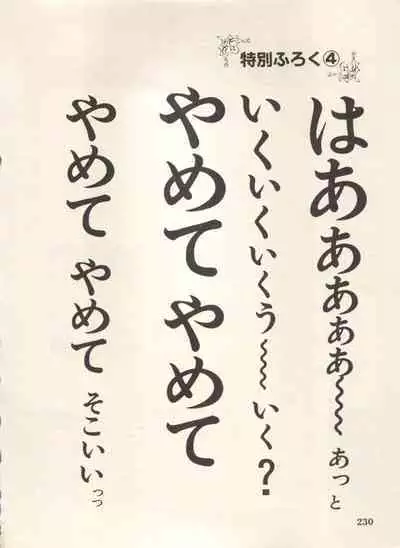 特別ふろく④
はあぁぁぁぁ～～～ あっと
いくいくいくう～～～いく？
やめて やめて
やめて やめて そこいいっっ
230